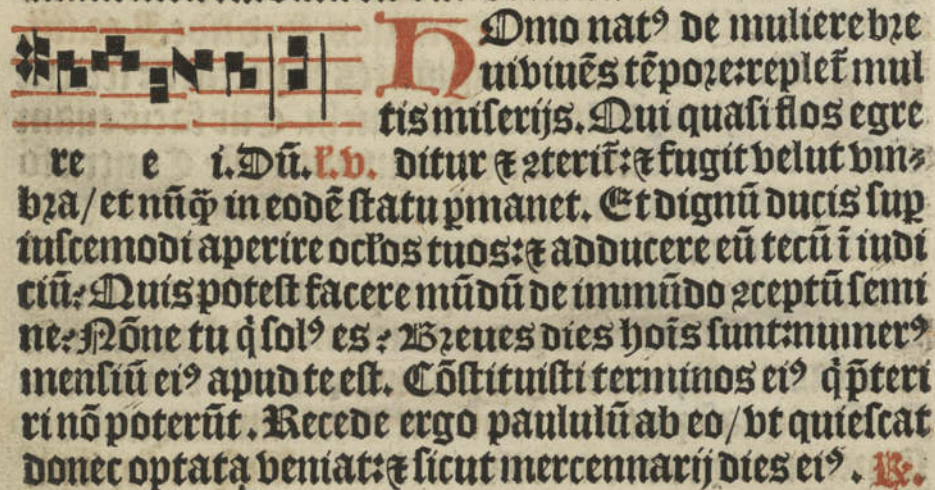 HOmo natꝰ de muliere bre
ui viuēs tēpore: repletʳ mul
tis miserijs. Qui quasi flos egre
re e i. Dū. l̃. v. ditur ⁊ ꝯteritʳ: ⁊ fugit velut vm⸗
bra/ et nūꝗ̈ in eodē statu ꝑmanet. Et dignū ducis suꝑ
iuscemodi aperire ocl̃os tuos: ⁊ adducere eū tecū ī iudi
ciū? Quis potest facere mūdū de immūdo ꝯceptū semi
ne? Nōne tu q̇ solꝰ es? Breues dies hoīs sunt: numerꝰ
mensiū eiꝰ apud te est. Cōstituisti terminos eiꝰ q̇ p̄teri
ri nō poterūt. Recede ergo paululū ab eo/ vt quiescat
donec optata veniat: ⁊ sicut mercennarij dies eiꝰ. ℟.